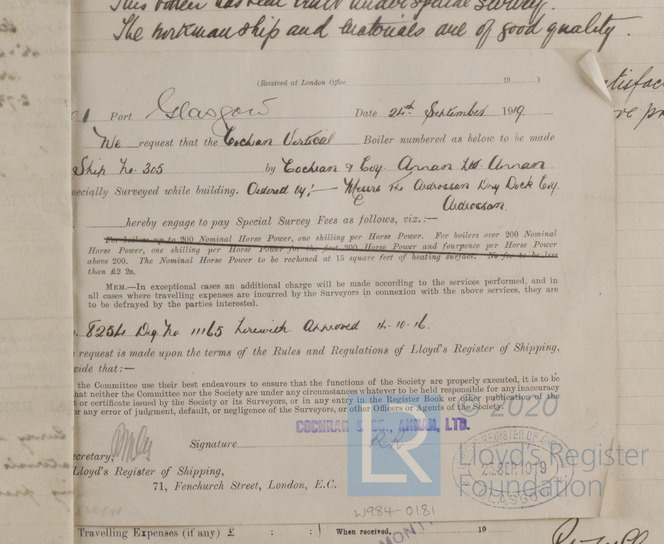 This boiler has been built under special survey.
The workmanship and materials are of good quality.
(Received at London Office 19 )
Port Glasgow Date 24th September 1919
We request that the Cochran Vertical Boiler numbered as below to be made
Ship No. 305 by Cochran & Coy. Annan Ltd. Annan
pecially Surveyed while building. Ordered by:— Messrs The Ardrossan Dry Dock Coy.
Ardrossan.
hereby engage to pay Special Survey Fees as follows, viz.:—
For boilers up to 200 Nominal Horse Power, one shilling per Horse Power. For boilers over 200 Nominal
Horse Power, one shilling per Horse Power for the first 200 Horse Power and fourpence per Horse Power
above 200. The Nominal Horse Power to be reckoned at 15 square feet of heating surface. No fee to be less
than £2 2s.
MEM.—In exceptional cases an additional charge will be made according to the services performed, and in
all cases where travelling expenses are incurred by the Surveyors in connexion with the above services, they are
to be defrayed by the parties interested.
Drg No 11165 Approved 4.10.16.
request is made upon the terms of the Rules and Regulations of Lloyd's Register of Shipping,
vide that:—
the Committee use their best endeavours to ensure that the functions of the Society are properly executed, it is to be
that neither the Committee nor the Society are under any circumstances whatever to be held responsible for any inaccuracy
or certificate issued by the Society or its Surveyors, or in any entry in the Register Book or other publication of the
or any error of judgment, default, or negligence of the Surveyors, or other Officers or Agents of the Society.
© 2020
COCHRAN & CO., ANNAN, LTD.
Signature
LR
Lloyd's Register
Foundation
ecretary,
Lloyd's Register of Shipping,
71, Fenchurch Street, London, E.C.
W984-0181
Travelling Expenses (if any) £ : : When received, 19